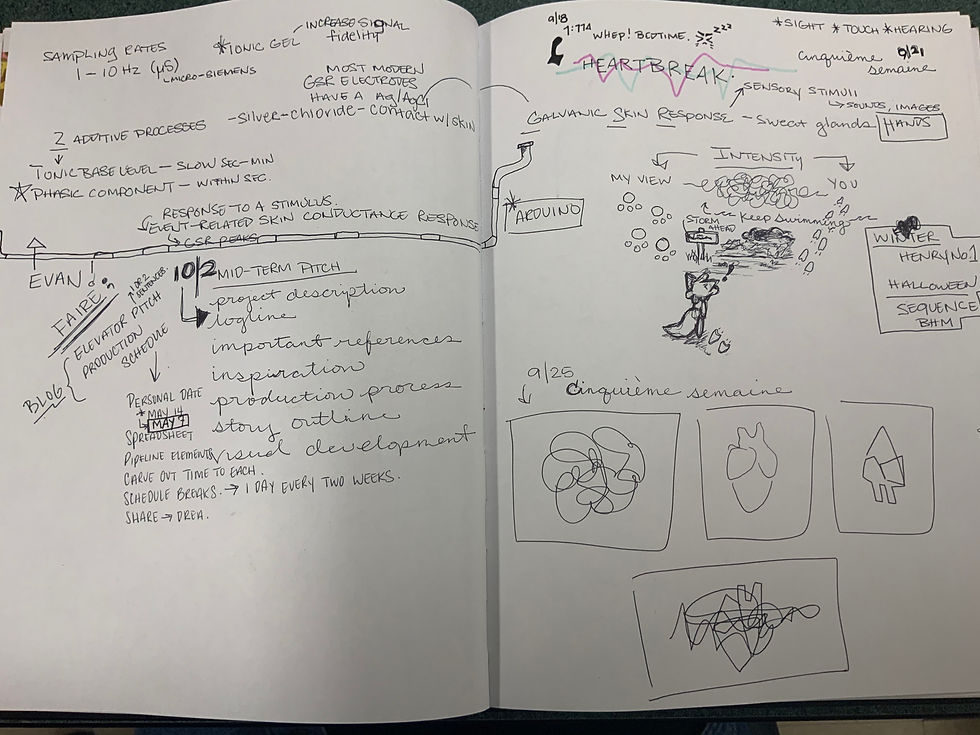 SAMPLING RATES
1-10 Hz (µS)
MICRO-SIEMENS
*IONIC GEL
INCREASE SIGNAL
fidelity
MOST MODERN
GSR ELECTRODES
HAVE A Ag/AgCl
-silver-chloride-contact w/skin
2 ADDITIVE PROCESSES
TONIC BASE LEVEL - SLOW SEC-MIN
PHASIC COMPONENT - WITHIN SEC.
RESPONSE TO A STIMULUS.
EVENT-RELATED SKIN CONDUCTANCE RESPONSE
GSR PEAKS
EVAN
FAIRE
BLOG
1 OR 2
SENTENCES.
ELEVATOR PITCH
PRODUCTION
SCHEDULE
PERSONAL DATE
* MAY 14
MAY 7
SPREADSHEET
PIPELINE ELEMENTS
CARVE OUT TIME TO EACH.
SCHEDULE BREAKS. → 1 DAY EVERY TWO WEEKS.
SHARE → DREA.
10/2 MID-TERM PITCH
project description
logline
important references
inspiration
production process
story outline
visual development
9/18
WHEP! BEDTIME.
zzz
HEARTBREAK.
*SIGHT *TOUCH *HEARING
cinquième 9/21
semaine
SENSORY STIMULI
SOUNDS, IMAGES
GALVANIC SKIN RESPONSE - sweat glands HANDS
INTENSITY
MY VIEW
YOU
* ARDUINO
STORM
AHEAD
Keep swimming
WINTER
HENRY NO.1
HALLOWEEN
SEQUENCE
BHM
9/25
Cinquième semaine